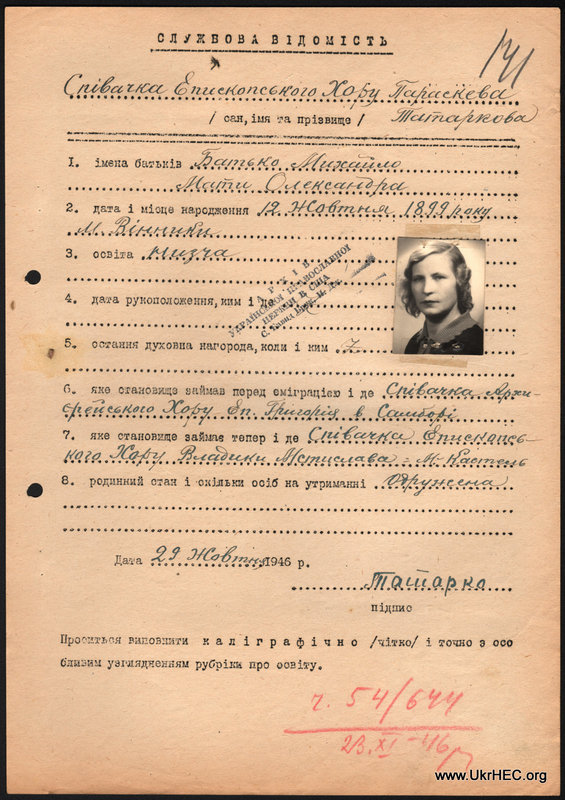 СЛУЖБОВА ВІДОМІСТЬ
141
Співачка Епископського Хору Параскева
/ сан, імя та прізвище / Татаркова
1. імена батьків Батько Михайло
Мати Олександра
2. дата і місце народження 12 Жовтня 1899 року
м. Вінники
3. освіта низча
АРХІВ
УКРАЇНСЬКОЇ ПРАВОСЛАВНОЇ
ЦЕРКВИ В США
4. дата рукоположення, ким і де
5. остання духовна нагорода, коли і ким
6. яке становище займав перед еміграцією і де Співачка Архи-
єрейського Хору Еп. Григорія в Самборі
7. яке становище займає тепер і де Співачка Епископсь-
кого Хору Владики Мстислава - М-Кастель
8. родинний стан і скільки осіб на утриманні Одружена
Дата 29 Жовтня 1946 р.
Татарко
підпис
Проситься виповнити каліграфічно /чітко/ і точно з осо
близим узглядненням рубріки про освіту.
ч. 54/644
23.XI-46р
www.UkrHEC.org